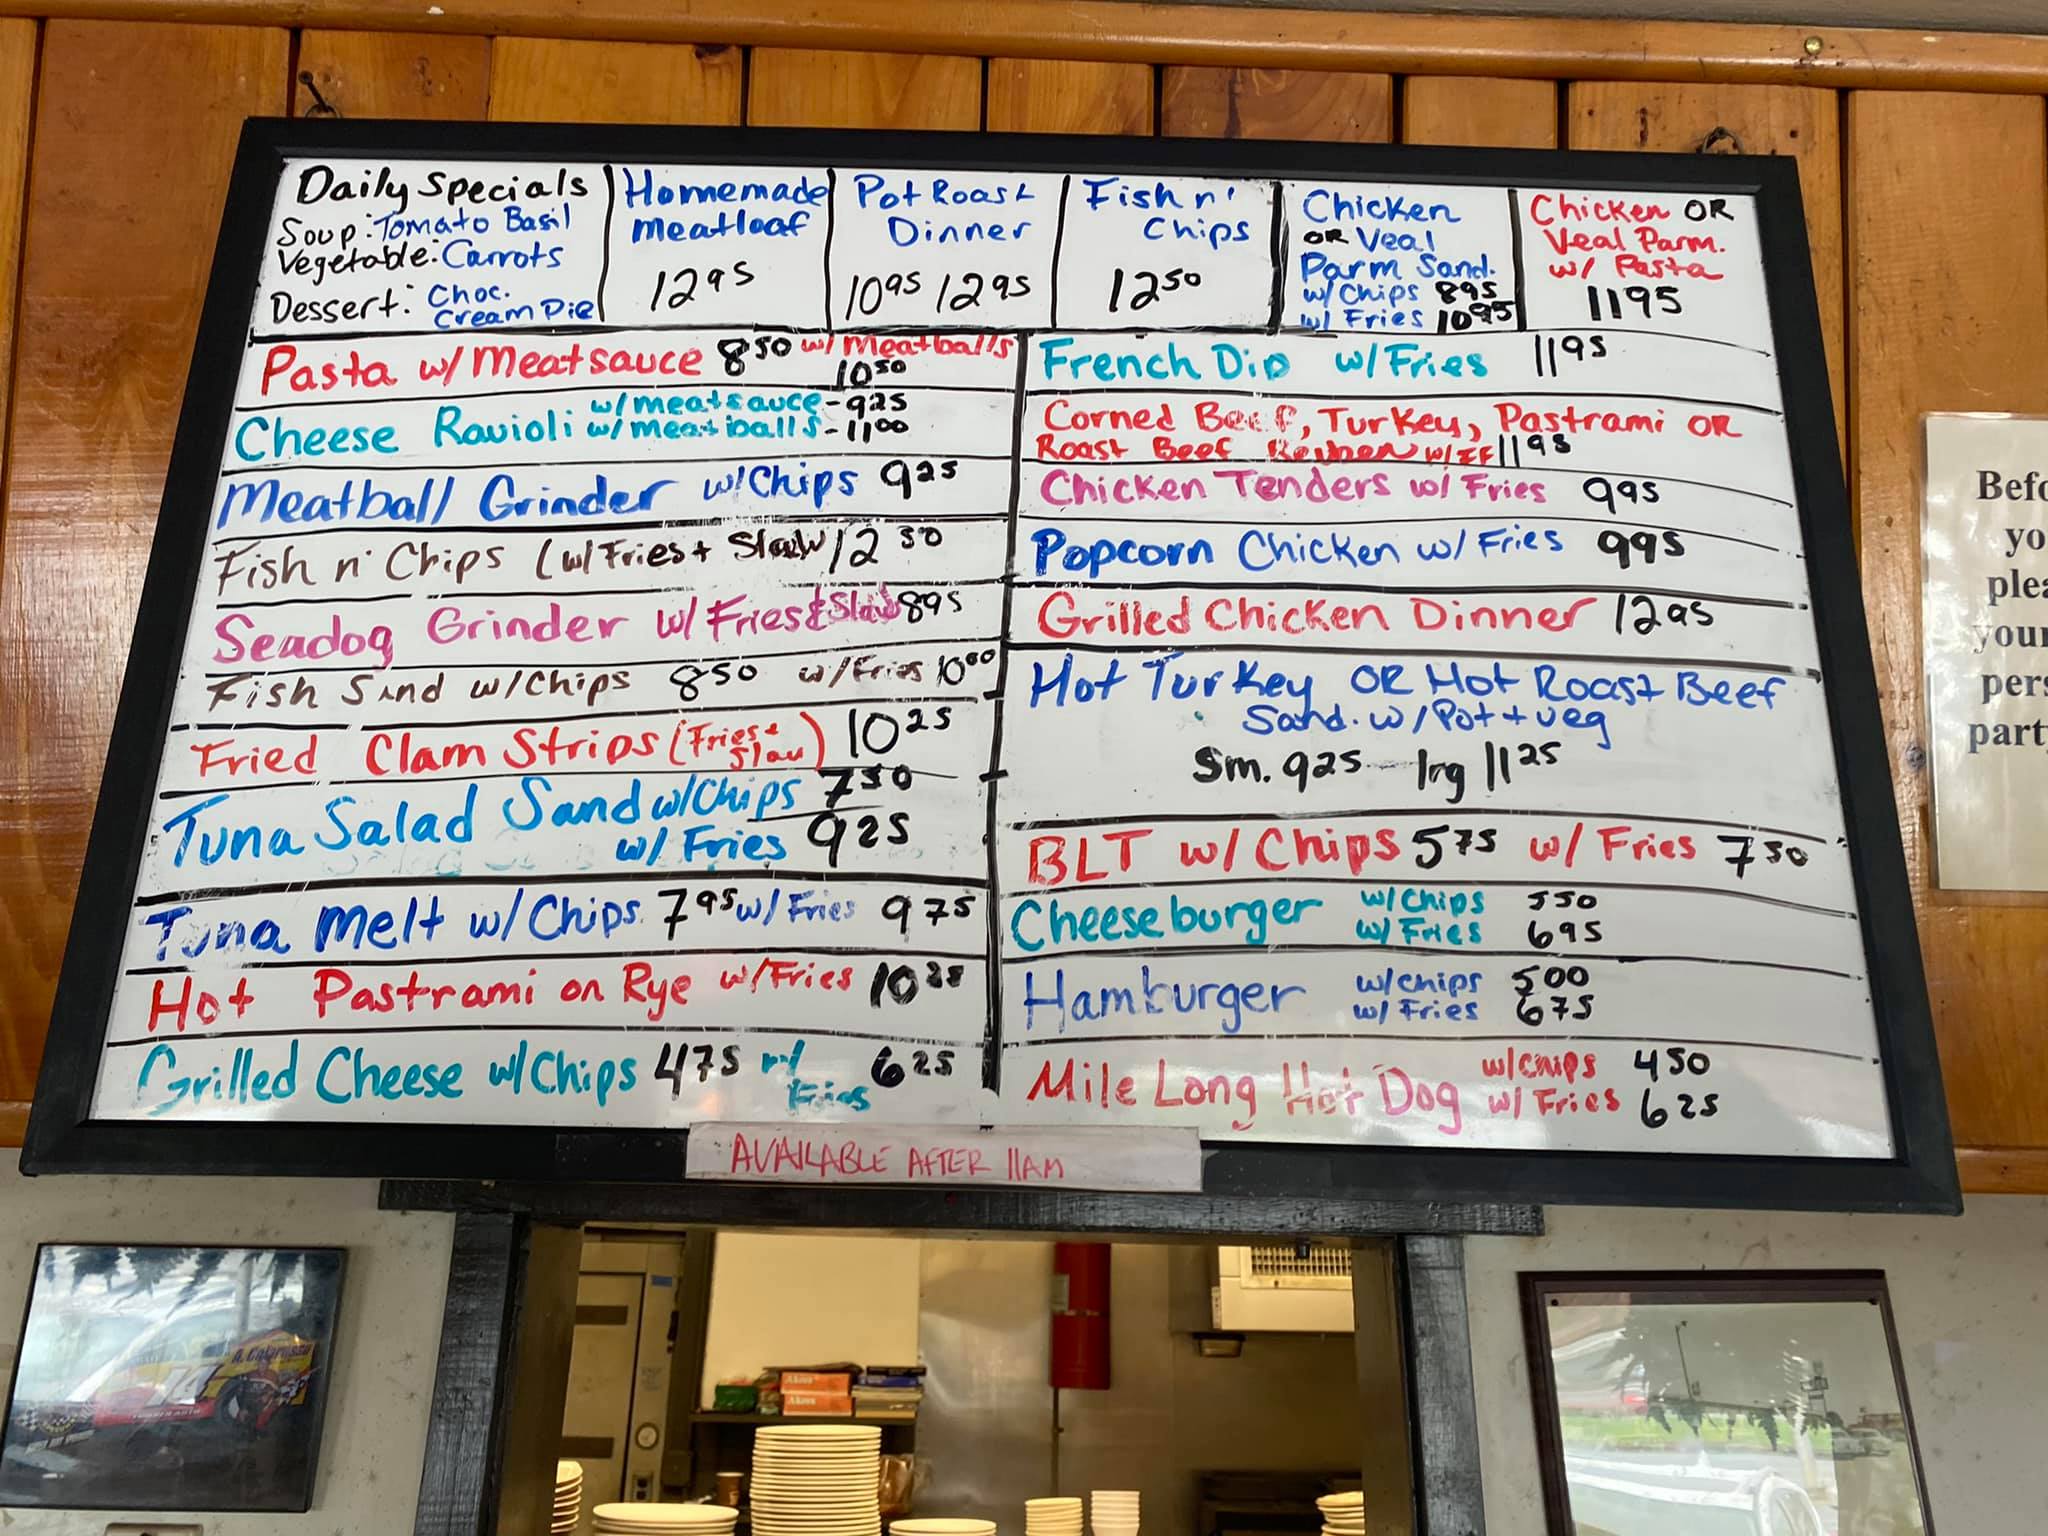 Daily Specials
Soup: Tomato Basil
Vegetable: Carrots
Dessert: Choc.
Cream Pie
Homemade
Meatloaf
12 95
Pot Roast
Dinner
10 95 12 95
Fish n'
Chips
12 50
Chicken
OR Veal
Parm Sand.
w/ Chips 8 95
w/ Fries 10 95
Chicken OR
Veal Parm.
w/ Pasta
11 95
Pasta w/ Meatsauce 8 50 w/ Meatballs
10 50
Cheese Ravioli w/ meatsauce - 9 25
w/ meatballs - 11 00
Meatball Grinder w/ Chips 9 25
Fish n' Chips (w/ Fries + Slaw 12 50
Seadog Grinder w/ Fries & Slaw 8 95
Fish Sand w/ Chips 8 50 w/ Fries 10 00
Fried Clam Strips (Fries +
Slaw) 10 25
Tuna Salad Sand w/ Chips 7 50
w/ Fries 9 25
Tuna Melt w/ Chips 7 95 w/ Fries 9 75
Hot Pastrami on Rye w/ Fries 10 25
Grilled Cheese w/ Chips 4 75 w/
Fries 6 25
French Dip w/ Fries 11 95
Corned Beef, Turkey, Pastrami OR
Roast Beef Reuben w/ FF 11 95
Chicken Tenders w/ Fries 9 95
Popcorn Chicken w/ Fries 9 95
Grilled Chicken Dinner 12 95
Hot Turkey OR Hot Roast Beef
Sand. w/ Pot + veg
Sm. 9 25 - lrg 11 25
BLT w/ Chips 5 75 w/ Fries 7 50
Cheeseburger w/ Chips 5 50
w/ Fries 6 95
Hamburger w/ chips 5 00
w/ Fries 6 75
Mile Long Hot Dog w/ chips 4 50
w/ Fries 6 25
AVAILABLE AFTER 11AM
Befo
yo
plea
your
pers
party
A. Colarusso
14
Akers
Akers